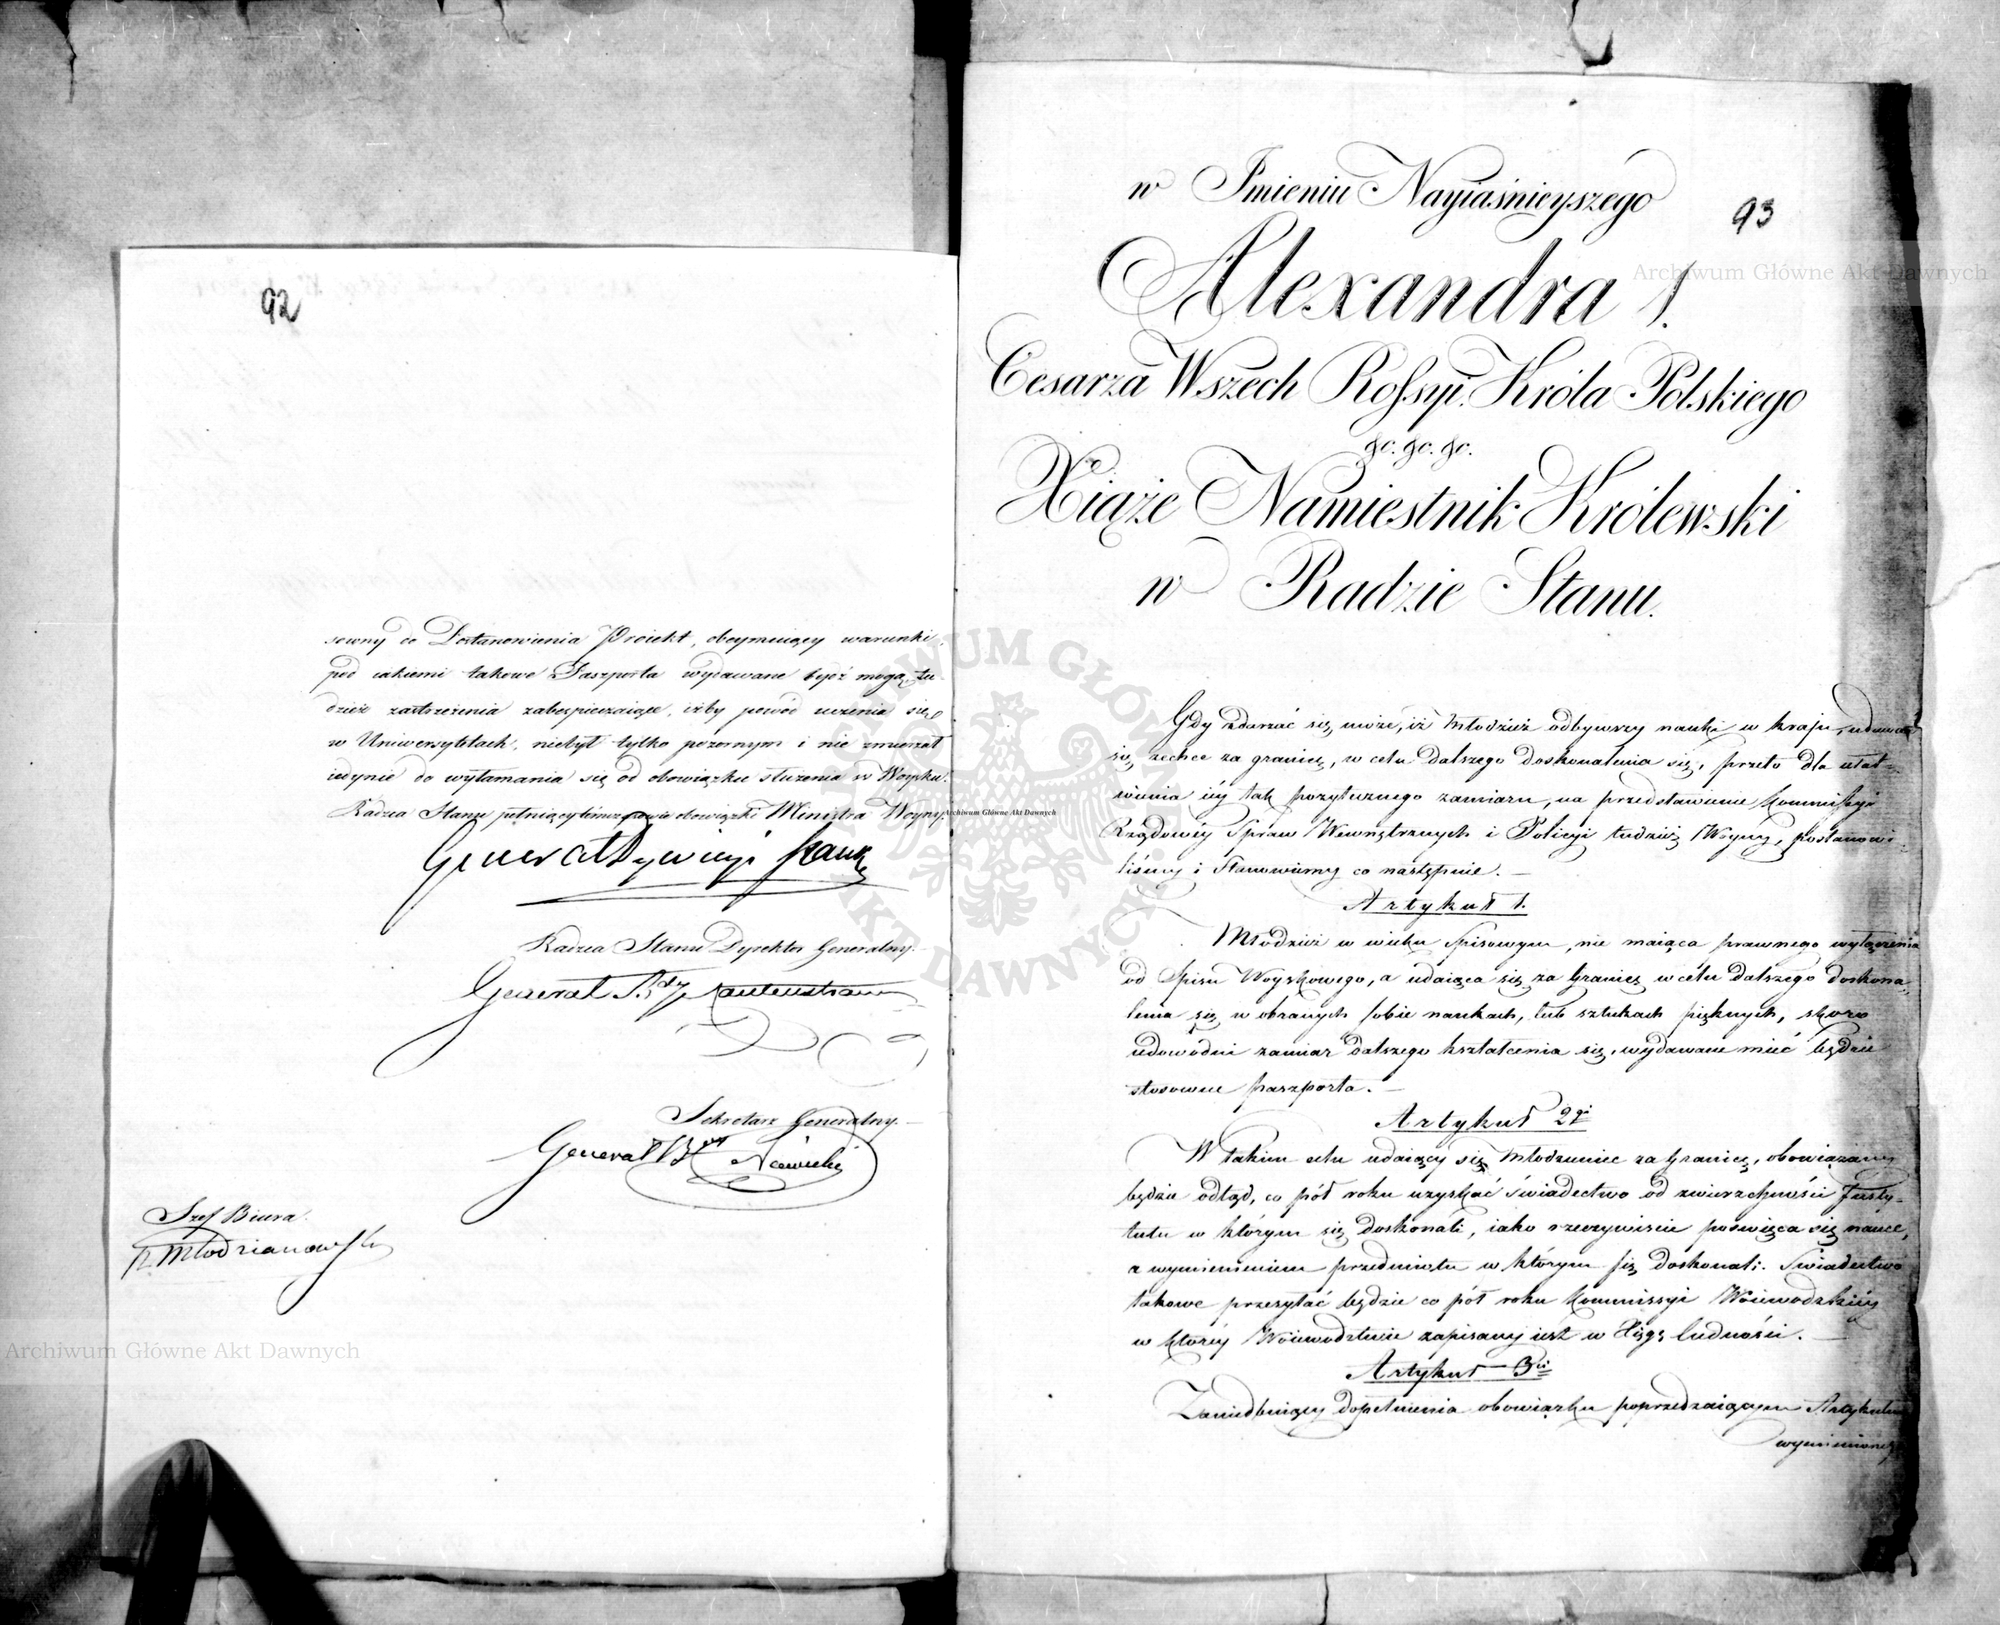 92
sowny do Postanowienia Proiekt, obeymuiący warunki,
pod iakiemi takowe Paszporta wydawane bydź mogą, tu-
dzież zastrzeżenia zabezpieczaiące, iżby powód uczenia się
w Uniwersytetach, niebył tylko pozornym i nie zmierzał
iedynie do wyłamania się od obowiązku służenia w Woysku.
Radca Stanu pełniący tymczasowie obowiązki Ministra Woyny,
Generał Dywizyi Hauke
Radca Stanu Dyrektor Generalny.
Generał Bdy Rautenstrauch
Sekretarz Generalny.
Generał Bry Nowicki
Szef Biura.
Młodzianowski
93
w Imieniu Nayiaśnieyszego
Alexandra I.
Cesarza Wszech Rossyi, Króla Polskiego
&c. &c. &c.
Xiąże Namiestnik Królewski
w Radzie Stanu.
Gdy zdarzać się może, iż Młodzież odbywszy nauki w kraju, udawać
się zechce za granicę, w celu dalszego doskonalenia się, przeto dla ułat-
wienia iéy tak pożytecznego zamiaru, na przedstawienie Kommissyi
Rządowéy Spraw Wewnętrznych i Policyi tudzież Woyny, postanowi-
liśmy i Stanowimy co następuie. —
Artykuł 1.
Młodzież w wieku Spisowym, nie maiąca prawnego wyłączenia
od Spisu Woyskowego, a udaiąca się za Granicę w celu dalszego doskona-
lenia się w obranych sobie naukach, lub sztukach pięknych, skoro
udowodni zamiar dalszego kształcenia się, wydawane mieć będzie
stosowne paszporta. —
Artykuł 2gi
W takim celu udaiący się Młodzieniec za Granicę, obowiązany
będzie odtąd, co pół roku uzyskać świadectwo od zwierzchności Insty-
tutu w którym się doskonali, iako rzeczywiście poświęca się nauce,
z wymienieniem przedmiotu w którym się doskonali. Świadectwo
takowe przesyłać będzie co pół roku Kommissyi Woiewódzkiéy
w któréy Woiewództwie zapisany iest w Xięgę ludności. —
Artykuł 3ci
Zaniedbuiący dopełnienia obowiązku poprzedzaiącym Artykułem
wymienionego
Archiwum Główne Akt Dawnych
Archiwum Główne Akt Dawnych
Archiwum Główne Akt Dawnych
ARCHIWUM GŁÓWNE AKT DAWNYCH